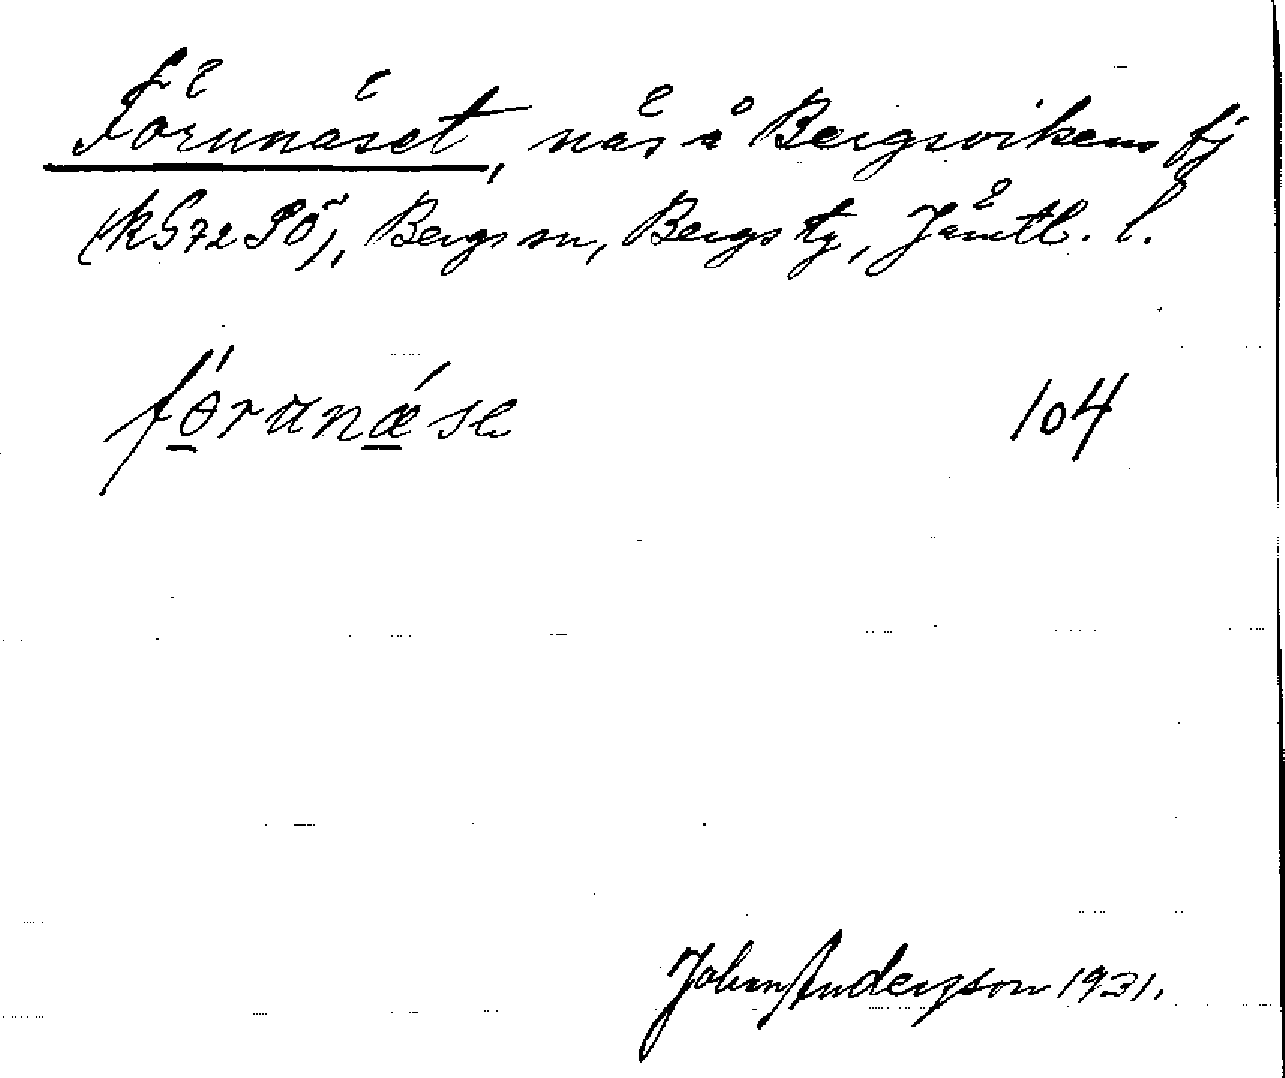 Förunäset, näs å Bergsvikens fj
(k S 72 SÖ), Bergs sn, Bergs tg, Jämtl. l.
fórunǽse 104
Johan Anderzson 1931.